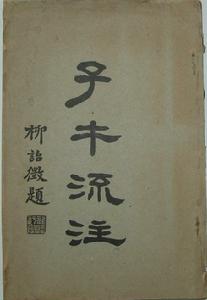 子午流注
柳詒徵題